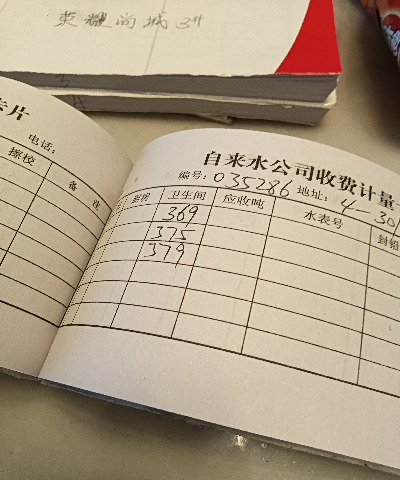 荣耀尚城 3#
卡片
电话：
擦校 备注
自来水公司收费计量
编号：035286 地址：4-30
厨房 卫生间 应收吨 水表号 封铅
369
375
379